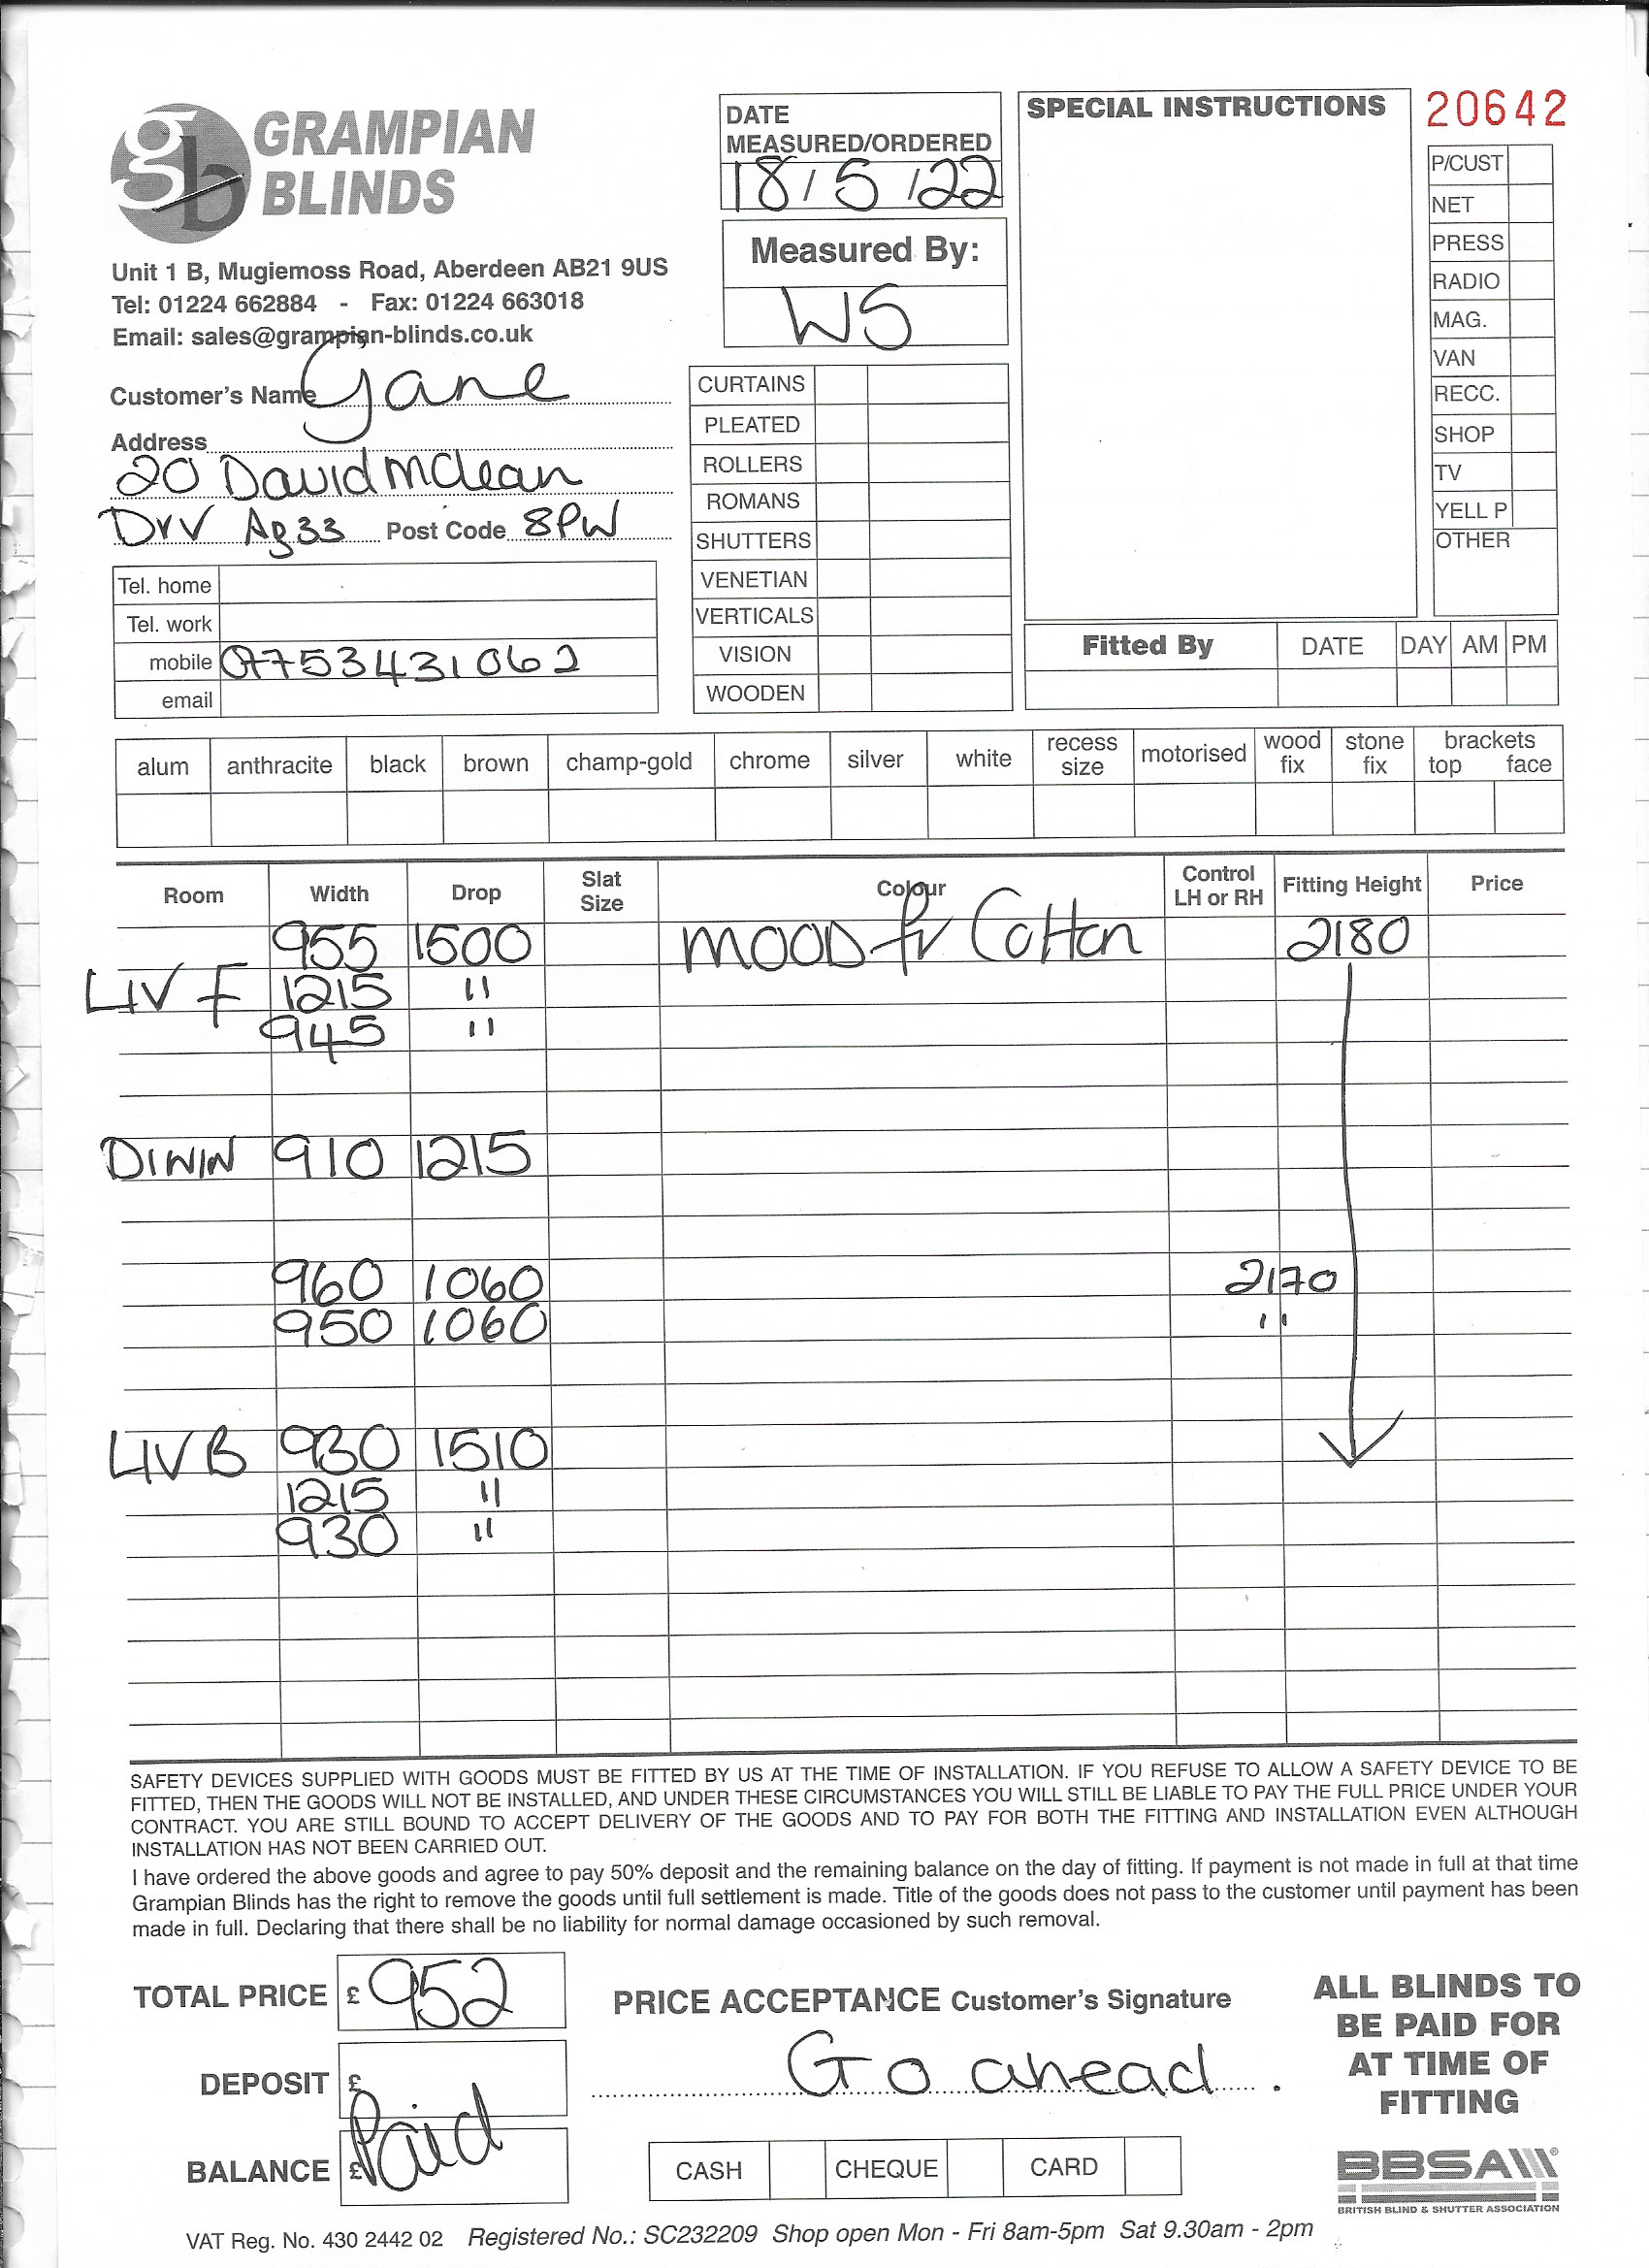 GRAMPIAN
BLINDS
Unit 1 B, Mugiemoss Road, Aberdeen AB21 9US
Tel: 01224 662884 - Fax: 01224 663018
Email: sales@grampian-blinds.co.uk
Customer's Name Jane
Address
20 David McLean
Drv AB33 Post Code 8PW
Tel. home
Tel. work
mobile 07753431062
email
DATE
MEASURED/ORDERED
18/5/22
Measured By:
WS
CURTAINS
PLEATED
ROLLERS
ROMANS
SHUTTERS
VENETIAN
VERTICALS
VISION
WOODEN
SPECIAL INSTRUCTIONS
20642
P/CUST
NET
PRESS
RADIO
MAG.
VAN
RECC.
SHOP
TV
YELL P
OTHER
Fitted By DATE DAY AM PM
alum anthracite black brown champ-gold chrome silver white recess size motorised wood fix stone fix brackets top face
Room Width Drop Slat Size Colour Control LH or RH Fitting Height Price
955 1500 MOOD fr Cotton 2180
LIV F 1215 "
945 "
DINin 910 1215
960 1060 2170
950 1060 "
LIV B 930 1510
1215 "
930 "
SAFETY DEVICES SUPPLIED WITH GOODS MUST BE FITTED BY US AT THE TIME OF INSTALLATION. IF YOU REFUSE TO ALLOW A SAFETY DEVICE TO BE
FITTED, THEN THE GOODS WILL NOT BE INSTALLED, AND UNDER THESE CIRCUMSTANCES YOU WILL STILL BE LIABLE TO PAY THE FULL PRICE UNDER YOUR
CONTRACT. YOU ARE STILL BOUND TO ACCEPT DELIVERY OF THE GOODS AND TO PAY FOR BOTH THE FITTING AND INSTALLATION EVEN ALTHOUGH
INSTALLATION HAS NOT BEEN CARRIED OUT.
I have ordered the above goods and agree to pay 50% deposit and the remaining balance on the day of fitting. If payment is not made in full at that time
Grampian Blinds has the right to remove the goods until full settlement is made. Title of the goods does not pass to the customer until payment has been
made in full. Declaring that there shall be no liability for normal damage occasioned by such removal.
TOTAL PRICE £ 952
DEPOSIT £
Paid
BALANCE £
PRICE ACCEPTANCE Customer's Signature
Go ahead.
CASH CHEQUE CARD
ALL BLINDS TO
BE PAID FOR
AT TIME OF
FITTING
BBSA
BRITISH BLIND & SHUTTER ASSOCIATION
VAT Reg. No. 430 2442 02 Registered No.: SC232209 Shop open Mon - Fri 8am-5pm Sat 9.30am - 2pm